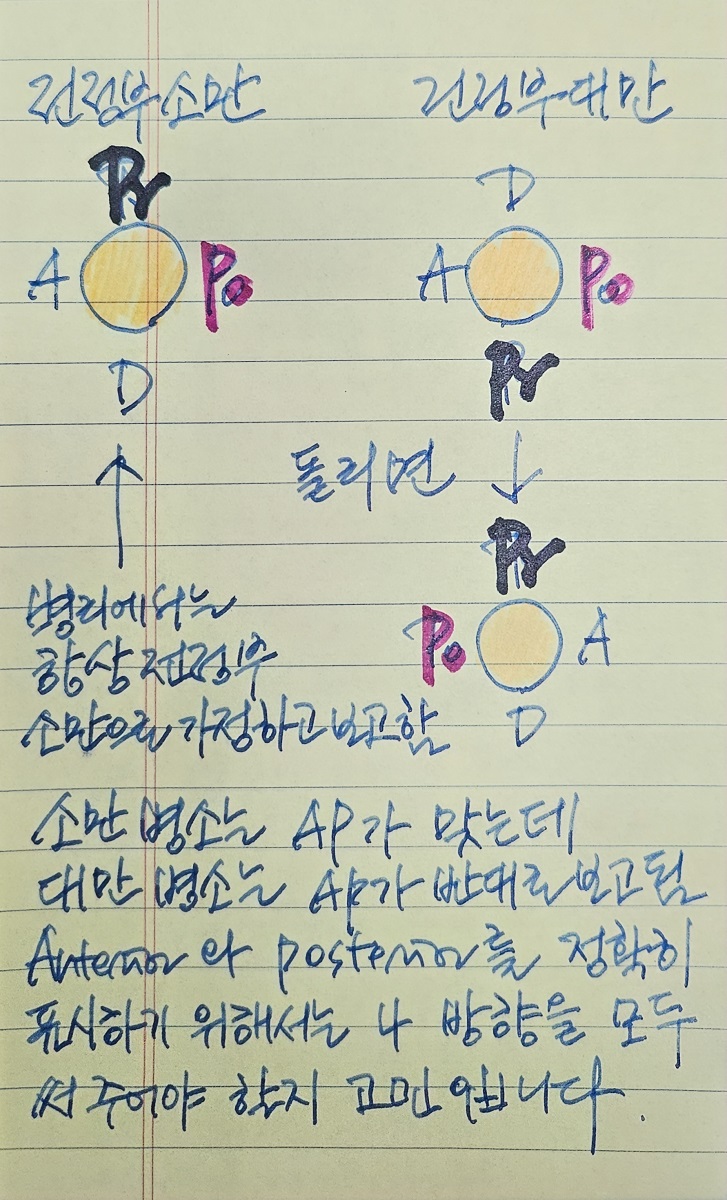 전정부 소만
전정부 대만
Pr
D
A
Po
A
Po
D
Pr
돌리면
Pr
Po
A
D
병리에서는
항상 전정부
소만으로 가정하고 보고함
소만 병소는 AP가 맞는데
대만 병소는 AP가 반대로 보고됨
Anterior와 posterior를 정확히
표시하기 위해서는 4 방향을 모두
써 주어야 할지 고민입니다.